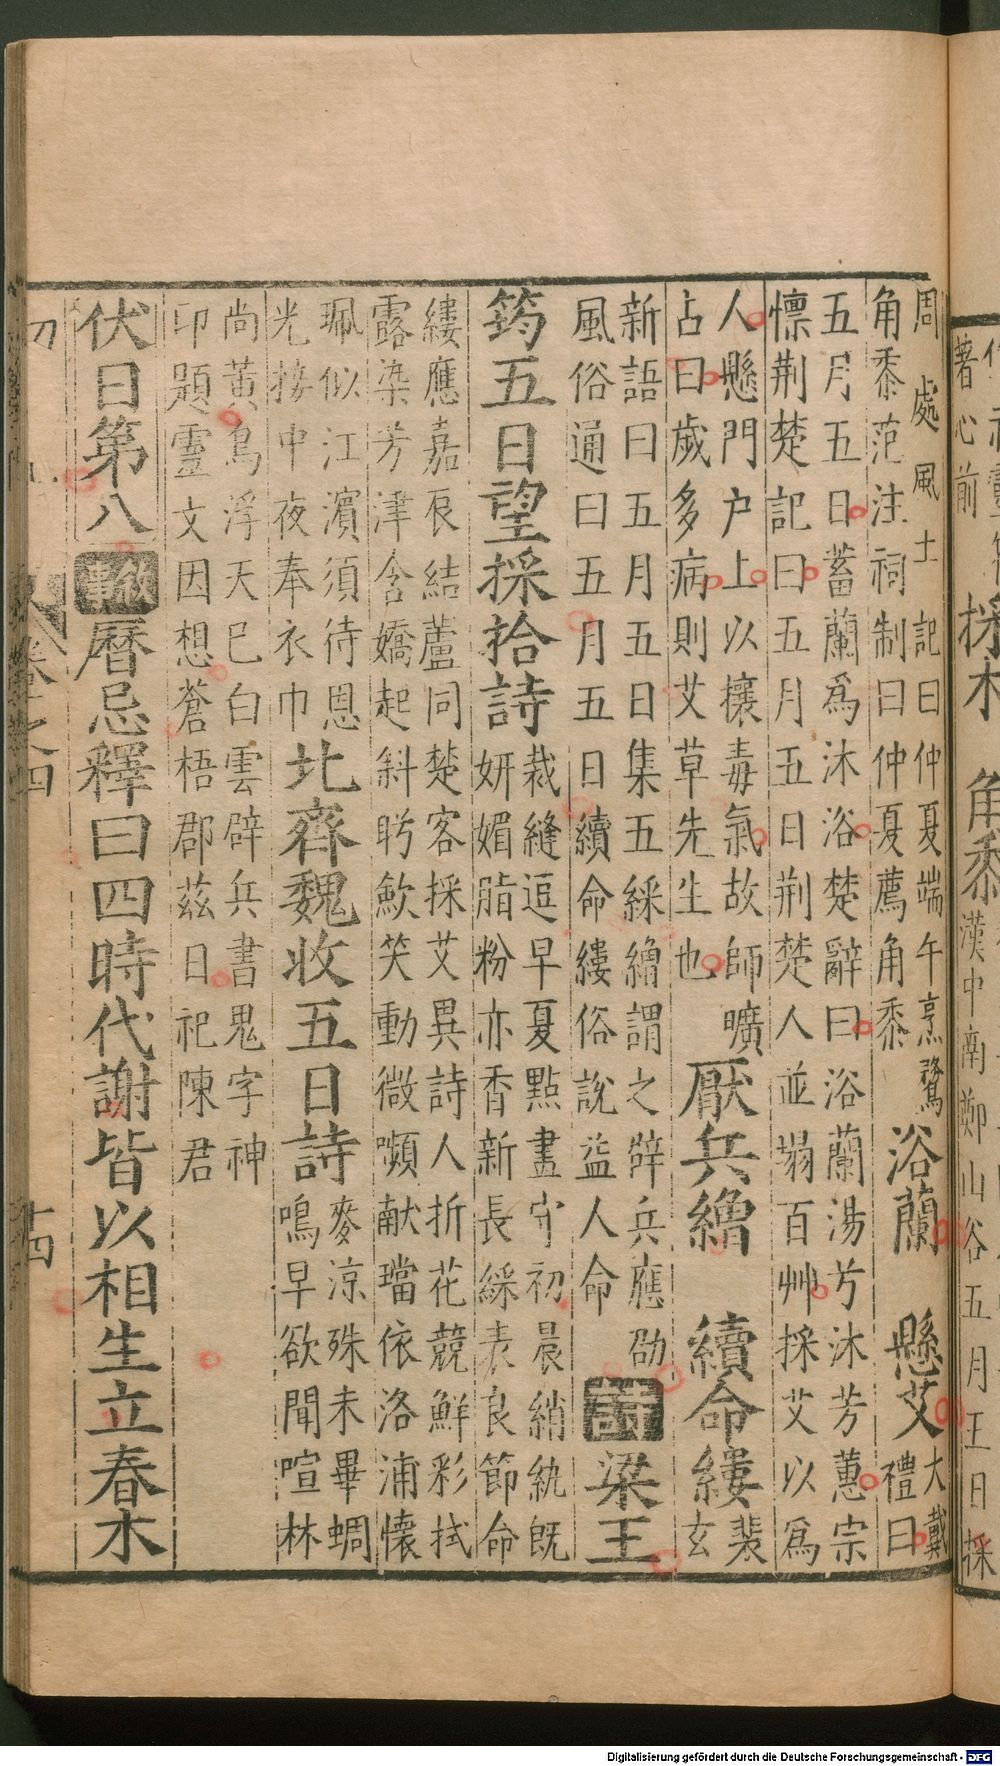 周處風土記曰仲夏端午烹鶩
角黍范注祠制曰仲夏薦角黍
浴蘭 懸艾
大戴
禮曰
五月五日蓄蘭爲沐浴楚辭曰浴蘭湯兮沐芳蕙宗
懍荆楚記曰五月五日荆楚人並蹋百艸採艾以爲
人懸門户上以攘毒氣故師曠
占曰歲多病則艾草先生也
厭兵繒 續命縷
裴
玄
新語曰五月五日集五綵繒謂之辟兵應劭
風俗通曰五月五日續命縷俗說益人命
詩
梁王
筠五日望採拾詩
裁縫逗早夏點畫守初晨綃紈既
妍媚脂粉亦香新長綵表良節命
縷應嘉辰結蘆同楚客採艾異詩人折花競鮮彩拭
露染芳津含嬌起斜眄斂笑動微嚬献璫依洛浦懷
珮似江濵須待恩
光接中夜奉衣巾
北齊魏收五日詩
麥涼殊未畢蜩
鳴早欲聞喧林
尚黄鳥浮天已白雲辟兵書鬼字神
印題靈文因想蒼梧郡茲日祀陳君
伏日第八
敘事
曆忌釋曰四時代謝皆以相生立春木
卷之四
十四
著心前
採朮
角黍
漢中南鄭山谷五月五日採
Digitalisierung gefördert durch die Deutsche Forschungsgemeinschaft - DFG